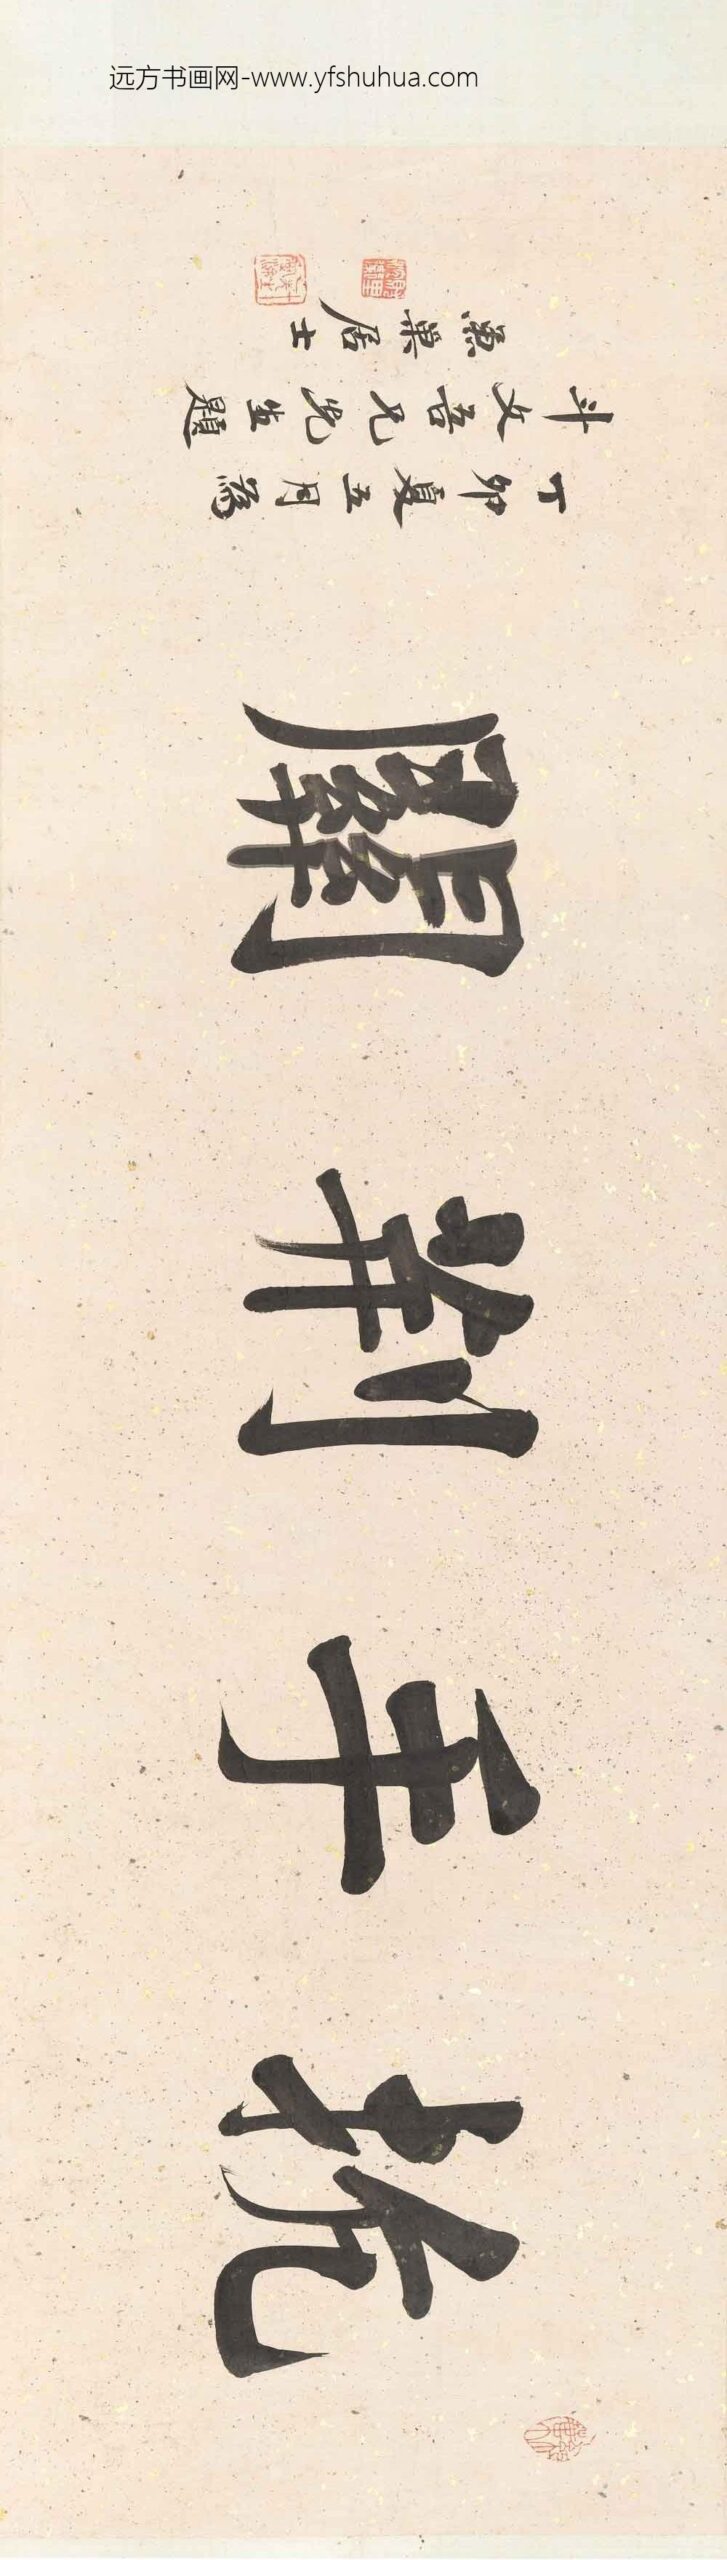 远方书画网-www.yfshuhua.com
抗手荊關
丁卯夏五月為
斗文吾兄先生題
巢居士